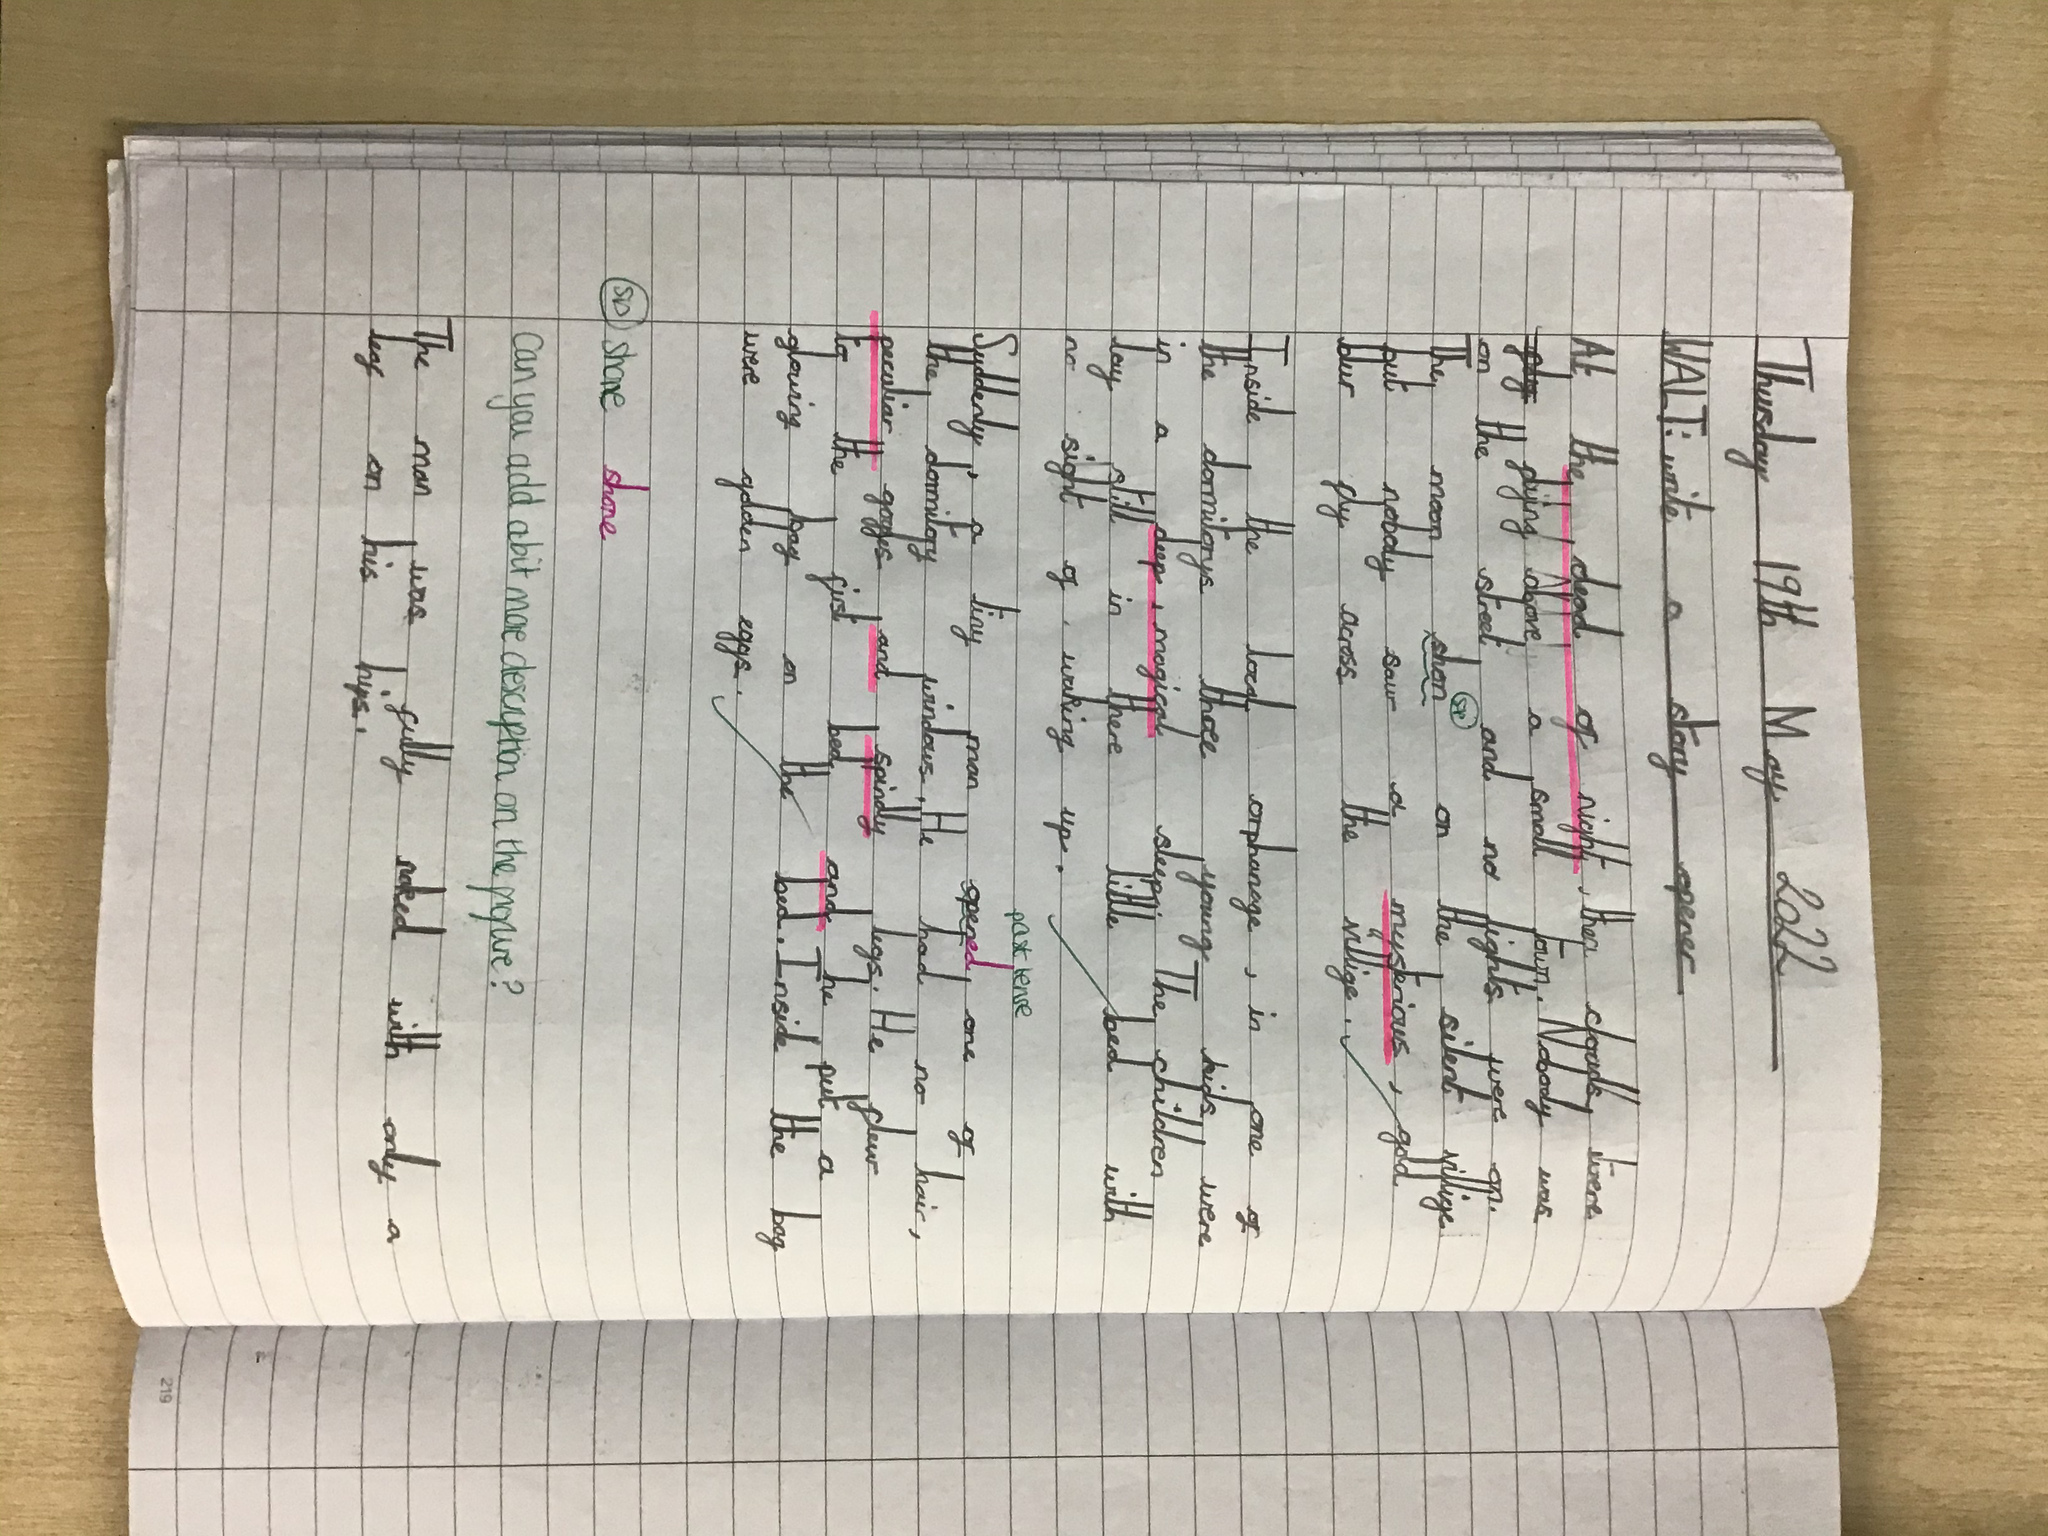 Thursday 19th May 2022
WALT: write a story opener
At the dead of night, then clouds were
flying above a small town. Nobody was
on the street and no lights were on.
The moon shon on the silent villige
sp
but nobody saw a mysterious, gold
blur fly across the villige.
Inside the local orphanage, in one of
the domitorys those young kids were
in a deep, magical sleep. The children
lay still in there little bed with
no sight of waking up.
past tense
Suddenly, a tiny man opened one of
the domitory windows. He had no hair,
peculiar goggles and spindly legs. He flew
to the first bed and he put a
glowing bag on the bed. Inside the bag
were golden eggs.
sp shone shone
Can you add a bit more description on the propure?
The man was fully naked with only a
leaf on his hips.
219